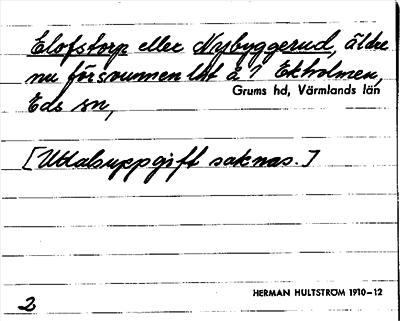 Elofstorp eller Nybyggerud, äldre
nu försvunnen lht å 1 Ekholmen,
Grums hd, Värmlands län
Eds sn,
[Uttalsuppgift saknas.]
HERMAN HULTSTRÖM 1910–12
2